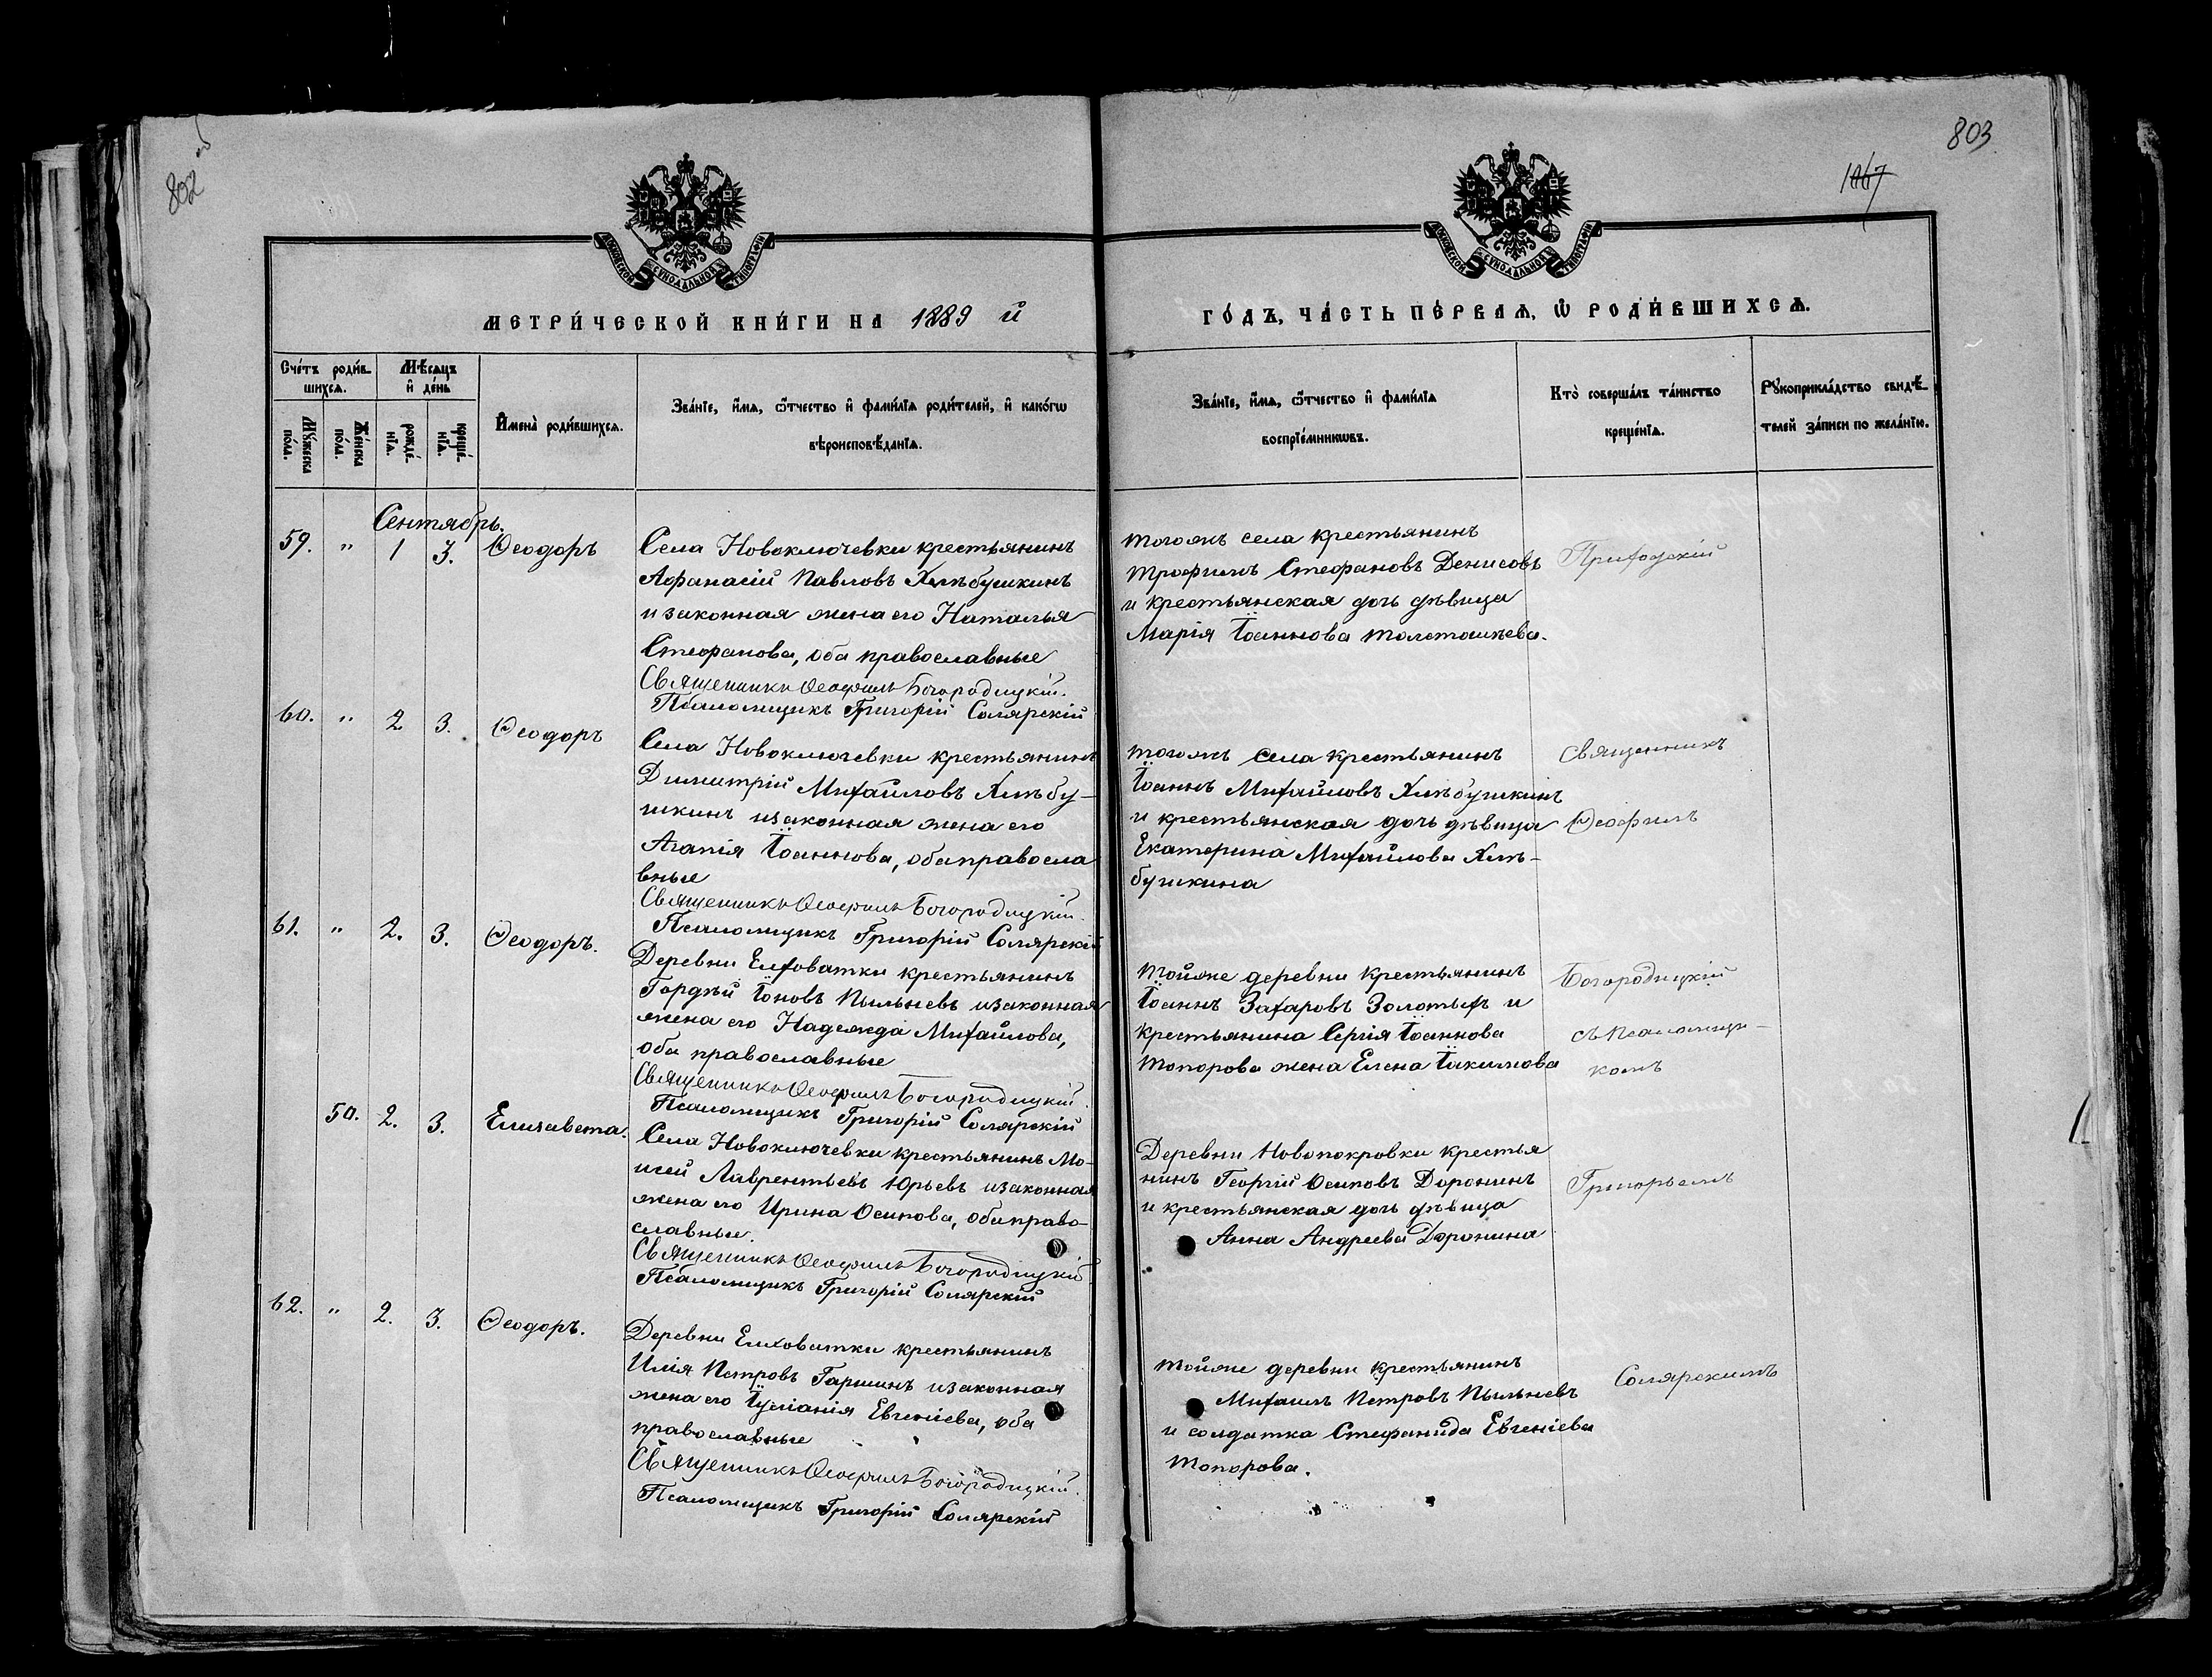 802 об
803
1067
МОСКОВСКОЙ СѴНОДАЛЬНОЙ ТИПОГРАФІИ
МОСКОВСКОЙ СѴНОДАЛЬНОЙ ТИПОГРАФІИ
МЕТРИ́ЧЕСКОЙ КНИ́ГИ НА 1889 й
ГО́ДЪ, ЧА́СТЬ ПЕ́РВАѦ, Ѡ РОДИ́ВШИХСѦ.
Сче́тъ роди́в-
шихсѧ.
Мѣ́сѧцъ
и҆ де́нь
Му́жеска
по́ла.
Же́нска
по́ла.
рожде́-
нїѧ.
креще́-
нїѧ.
И҆мена̀ роди́вшихсѧ.
Зва́нїе, и҆́мѧ, ѻ҆́тчество и҆ фами́лїѧ роди́телей, и҆ како́гѡ
вѣроисповѣ́данїѧ.
Зва́нїе, и҆́мѧ, ѻ҆́тчество и҆ фами́лїѧ
воспрїе́мникѡвъ.
Кто̀ соверша́лъ та́инство
креще́нїѧ.
Рꙋкоприкла́дство свидѣ́-
телей за́писи по жела́нїю.
Сентябрь.
59. " 1 3. Ѳеодоръ
Села Новоключевки крестьянинъ
Афанасій Павловъ Хлѣбушкинъ
и законная жена его Наталья
Стефанова, оба православные
Священникъ Ѳеофилъ Богородицкій.
Псаломщикъ Григорій Солярскій
тогожъ села крестьянинъ
Трофимъ Стефановъ Денисовъ
и крестьянская дочь дѣвица
Марія Іоаннова
Приходскій
60. " 2 3. Ѳеодоръ
Села Новоключевки крестьянинъ
Димитрій Михайловъ Хлѣбу-
шкинъ и законная жена его
Агапія Іоаннова, оба правосла
вные
Священникъ Ѳеофилъ Богородицкій.
Псаломщикъ Григорій Солярскій
тогожъ села крестьянинъ
Іоаннъ Михайловъ Хлѣбушкинъ
и крестьянская дочь дѣвица
Екатерина Михайлова Хлѣ-
бушкина
Священникъ
Ѳеофилъ
61. " 2. 3. Ѳеодоръ.
Деревни Елховатки крестьянинъ
Гордѣй Іоновъ Пыльневъ и законная
жена его Надежда Михайлова,
оба православные
Священникъ Ѳеофилъ Богородицкій.
Псаломщикъ Григорій Солярскій
тойже деревни крестьянинъ
Іоаннъ Захаровъ Золотых и
крестьянина Сергія Іоаннова
Топорова жена Елена Іакимова
Богородицкій
съ псаломщи-
комъ
50. 2. 3. Елизавета.
Села Новоключевки крестьянинъ Мо-
исей Лаврентьевъ Юрьевъ и законная
жена его Ирина Осипова, оба право-
славные.
Священникъ Ѳеофилъ Богородицкій
Псаломщикъ Григорій Солярскій
Деревни Новопокровки крестья
нинъ Георгій Осиповъ Доронинъ
и крестьянская дочь дѣвица
Анна Андреева Доронина
Григорьемъ
62. " 2. 3. Ѳеодоръ.
Деревни Елховатки крестьянинъ
Илія Петровъ Гаршинъ и законная
жена его Іуліанія Евгеніева, оба
православные
Священникъ Ѳеофилъ Богородицкій.
Псаломщикъ Григорій Солярскій
тойже деревни крестьянинъ
Михаилъ Петровъ Пыльневъ
и солдатка Стефанида Евгеніева
Топорова.
Солярскимъ